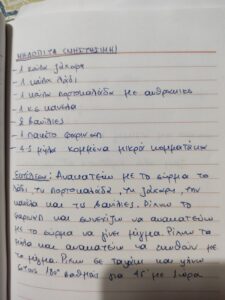 ΜΗΛΟΠΙΤΑ (ΝΗΣΤΙΣΙΜΗ)
- 1 κούπα ζάχαρη
- 1 κούπα λάδι
- 1 κούπα πορτοκαλάδα με ανθρακικό
- 1 κ.γ κανέλα
- 2 βανίλιες
- 1 πακέτο φαρινάπ
- 4-5 μήλα κομμένα μικρά κομματάκια
Εκτέλεση: Ανακατεύω με το σύρμα το
λάδι, τη πορτοκαλάδα, τη ζάχαρη, την
κανέλα και τις βανίλιες. Ρίχνω το
φαρινάπ και συνεχίζω να ανακατεύω
με το σύρμα να γίνει μείγμα. Ρίχνω τα
μήλα και ανακατεύω να ενωθούν με
το μείγμα. Ρίχνω σε ταψάκι και ψήνω
στους 180° βαθμούς για 45' με 1 ώρα